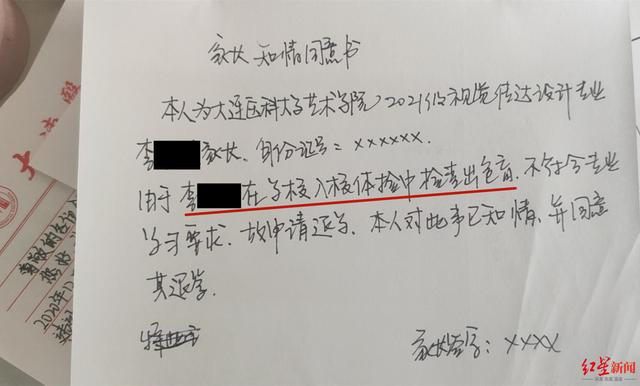 家长知情同意书
本人为大连医科大学艺术学院2021级视觉传达设计专业
李 家长、身份证号：xxxxxx.
由于李 在学校入校体检中检查出色盲、不符合专业
学习要求、故申请退学、本人对此事已知情、并同意
其退学.
家长签字：xxxx
红星新闻